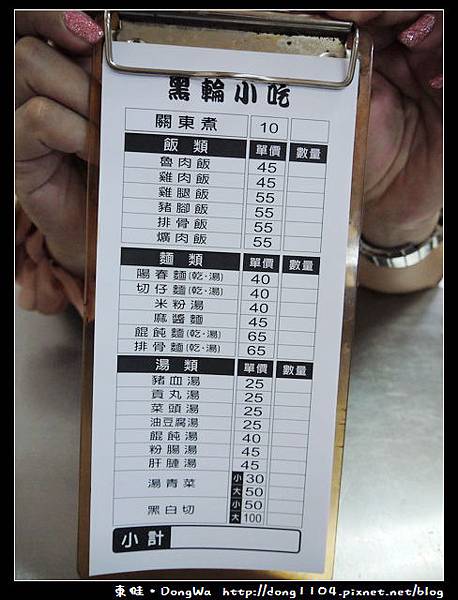 黑輪小吃
關東煮 10
飯類 單價 數量
魯肉飯 45
雞肉飯 45
雞腿飯 55
豬腳飯 55
排骨飯 55
爌肉飯 55
麵類 單價 數量
陽春麵(乾、湯) 40
切仔麵(乾、湯) 40
米粉湯 40
麻醬麵 45
餛飩麵(乾、湯) 65
排骨麵(乾、湯) 65
湯類 單價 數量
豬血湯 25
貢丸湯 25
菜頭湯 25
油豆腐湯 25
餛飩湯 40
粉腸湯 45
肝腱湯 45
湯青菜 小 30
大 50
黑白切 小 50
大 100
小計
東蛙。DongWa http://dong1104.pixnet.net/blog